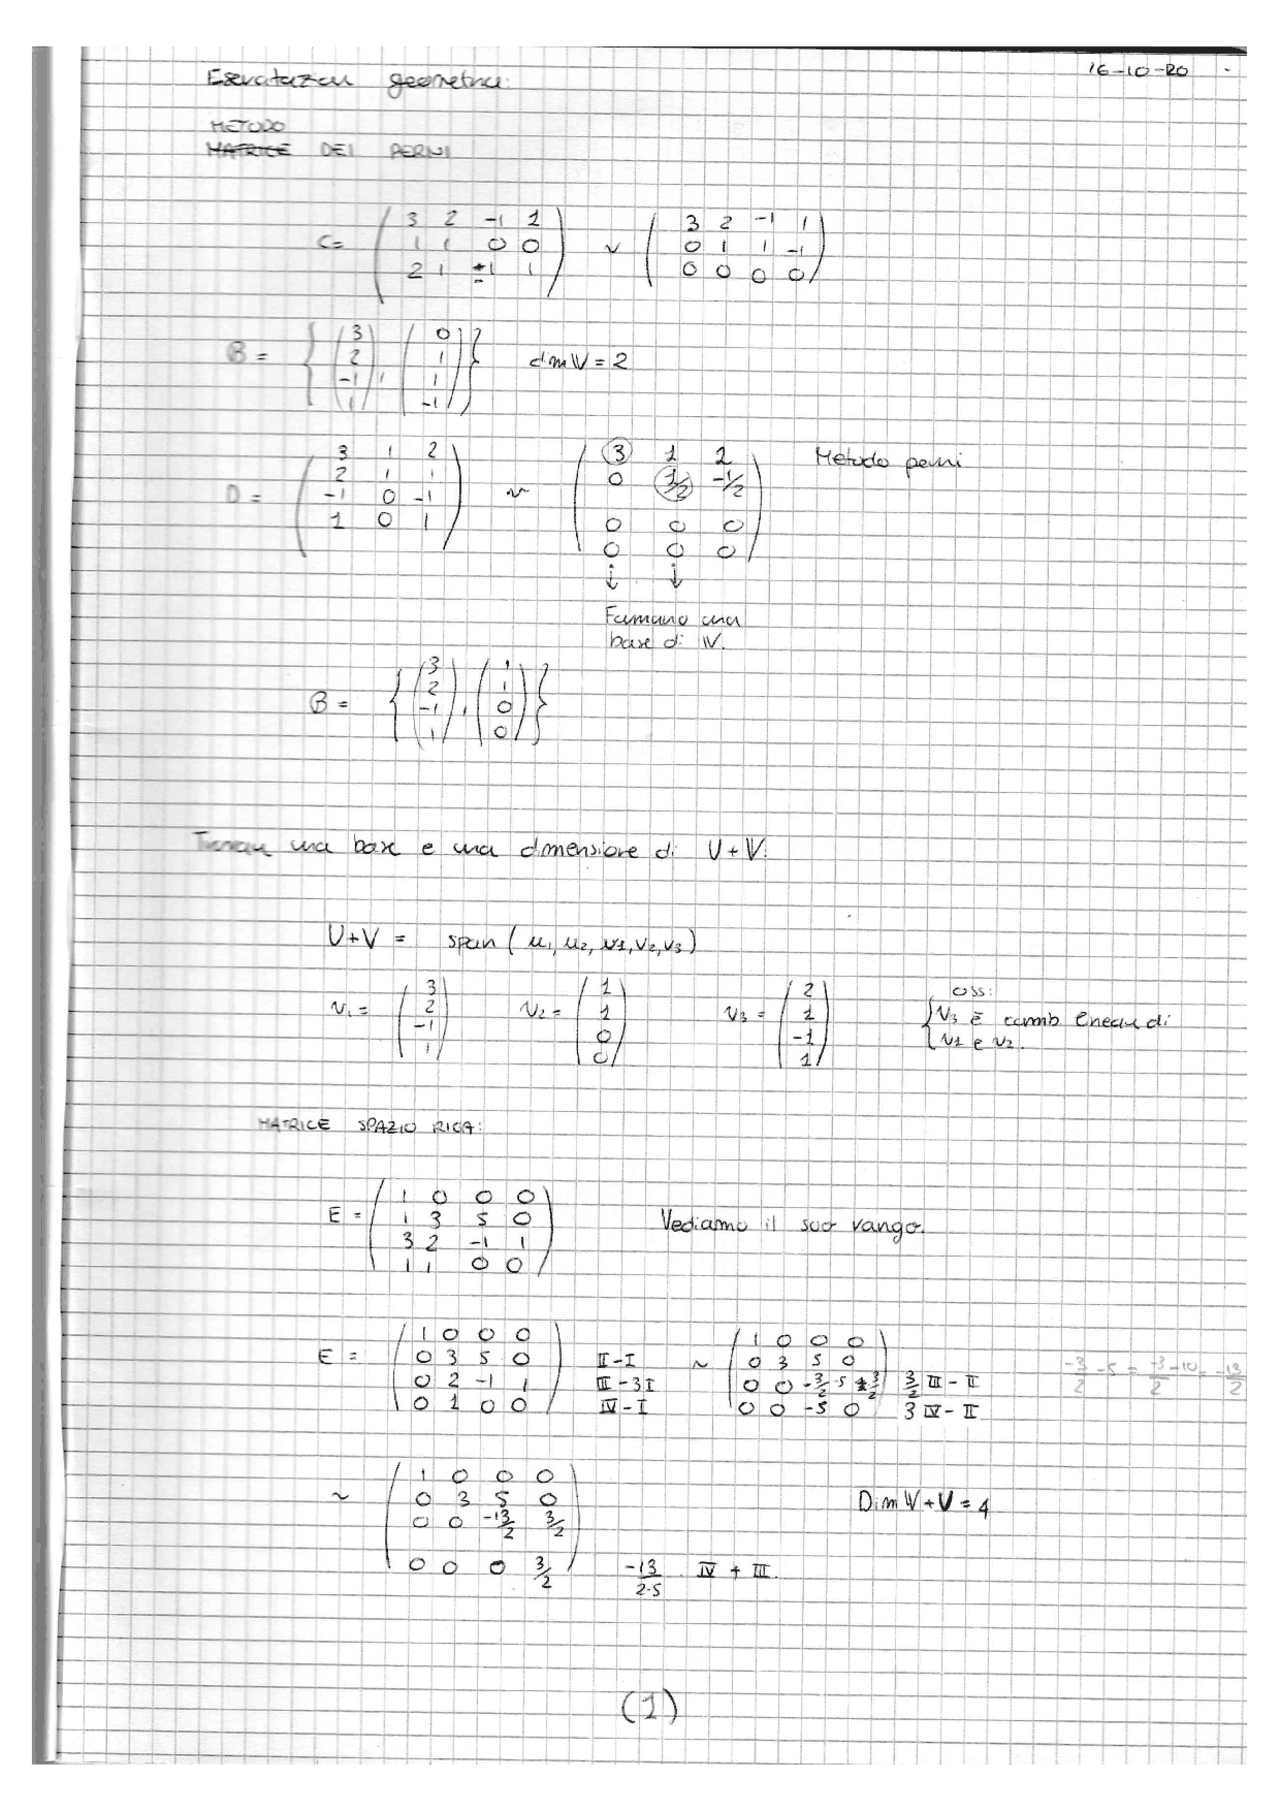 16-10-20
Esercitazioni geometria:
METODO
MATRICE DEI PERNI
C= ( 3 2 -1 1 ; 1 1 0 0 ; 2 1 -1 1 ) ~ ( 3 2 -1 1 ; 0 1 1 -1 ; 0 0 0 0 )
B = { ( 3 2 -1 1 ), ( 0 1 1 -1 ) } dim V = 2
D = ( 3 1 2 ; 2 1 1 ; -1 0 -1 ; 1 0 1 ) ~ ( 3 1 2 ; 0 1/2 -1/2 ; 0 0 0 ; 0 0 0 ) Metodo perni
↓ ↓
Formano una
base di V.
B = { ( 3 2 -1 1 ), ( 1 1 0 0 ) }
una base e una dimensione di U+V.
U+V = span ( u1, u2, v1, v2, v3 )
v1 = ( 3 2 -1 1 ) v2 = ( 1 1 0 0 ) v3 = ( 2 1 -1 1 )
oss:
{ v3 è comb lineare di
v1 e v2.
MATRICE SPAZIO RIGA:
E = ( 1 0 0 0 ; 1 3 5 0 ; 3 2 -1 1 ; 1 1 0 0 ) Vediamo il suo rango.
E = ( 1 0 0 0 ; 0 3 5 0 ; 0 2 -1 1 ; 0 1 0 0 ) II-I III-3I IV-I ~ ( 1 0 0 0 ; 0 3 5 0 ; 0 0 -3/2-5 +3/2 ; 0 0 -5 0 ) 3/2 III - II 3 IV - II -3/2 -5 = -3-10/2 = -13/2
~ ( 1 0 0 0 ; 0 3 5 0 ; 0 0 -13/2 3/2 ; 0 0 0 3/2 ) -13/2·5 IV + III. Dim V+U = 4
(1)